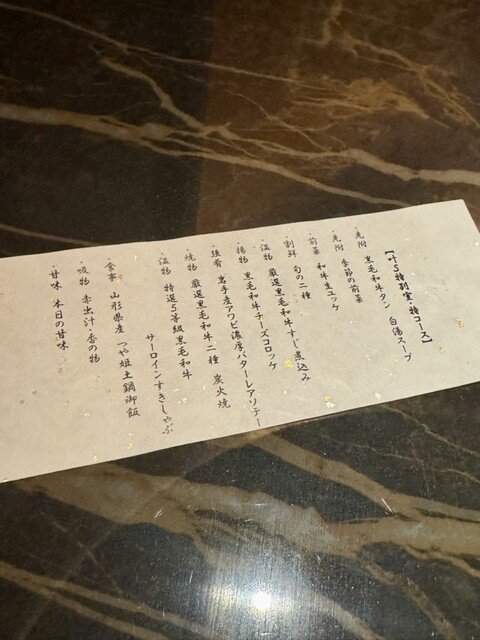 【叶S特別室・特コース】
・先附 黒毛和牛タン 白湯スープ
・先附 季節の前菜
・前菜 和牛生ユッケ
・割鮮 旬の二種
・温物 厳選黒毛和牛すじ煮込み
・揚物 黒毛和牛チーズコロッケ
・強肴 岩手産アワビ濃厚バターレアソテー
・焼物 厳選黒毛和牛二種 炭火焼
・温物 特選5等級黒毛和牛
サーロインすきしゃぶ
・食事 山形県産 つや姫土鍋御飯
・吸物 赤出汁・香の物
・甘味 本日の甘味